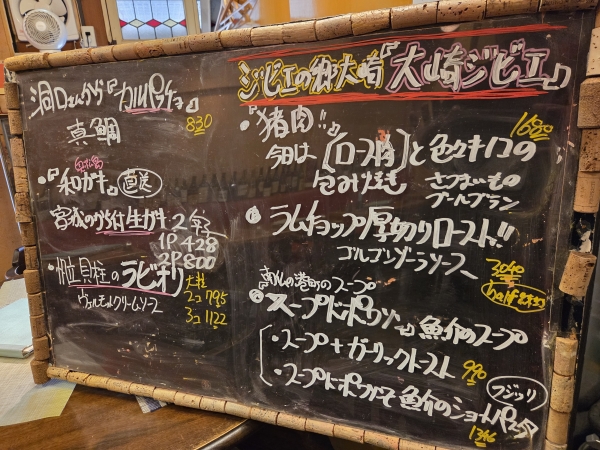 洞口さんから『カルパッチョ』
真鯛 830
・『和ガキ』 直送
宮城のから付生ガキ2年
1P 428
2P 800
・帆立貝柱のラビオリ
ヴェルモットクリームソース
大粒
2コ 795
3コ 1122
ジビエの大崎『大崎ジビエ』
・『猪肉!!』
1650
今日は〔ロース〕と色々キノコの
包み焼き さつまいもの
ラムチョップ厚切りロースト!!
ゴルゴンゾーラソース
3040
half
港町のスープ
スープドポワソン 魚介のスープ
・スープ+ガーリックトースト 990
・スープドポワソンと魚介のショートパスタ フジッリ